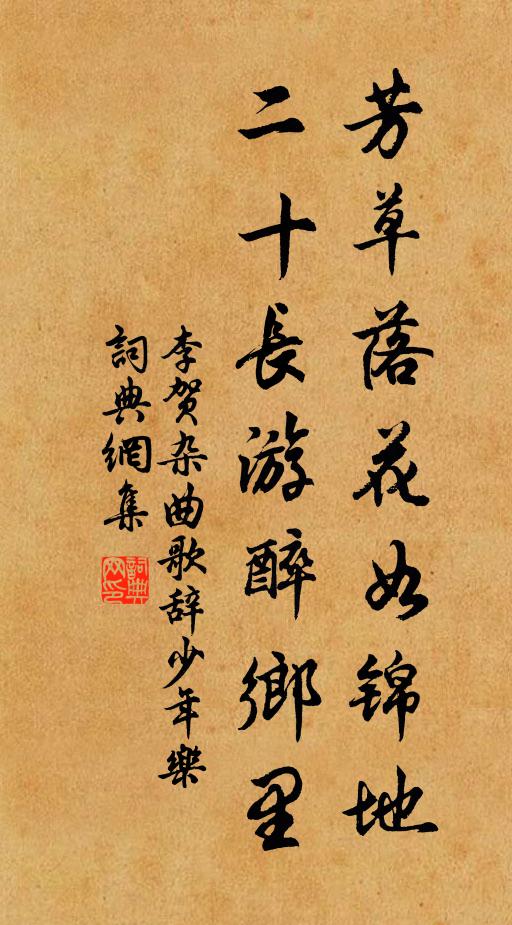 芳草落花如锦地
二十長游醉鄉里
李贺杂曲歌辞少年樂
詞典網集
詞典网印